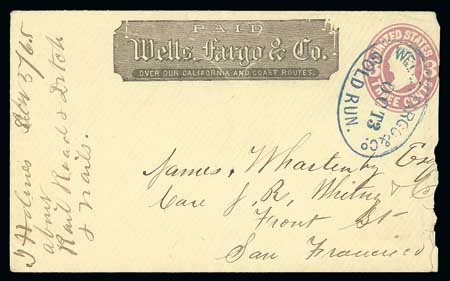 PAID
Wells, Fargo & Co.
OVER OUR CALIFORNIA AND COAST ROUTES.
UNITED STATES
THREE CENTS
WELLS FARGO & Co
OCT 3
GOLD RUN.
James, Whartenby Esq
Care J. R. Whitney & Co
Front St
San Francisco
J Holmes 3/65
about
Rail Road & Ditch
& nails.